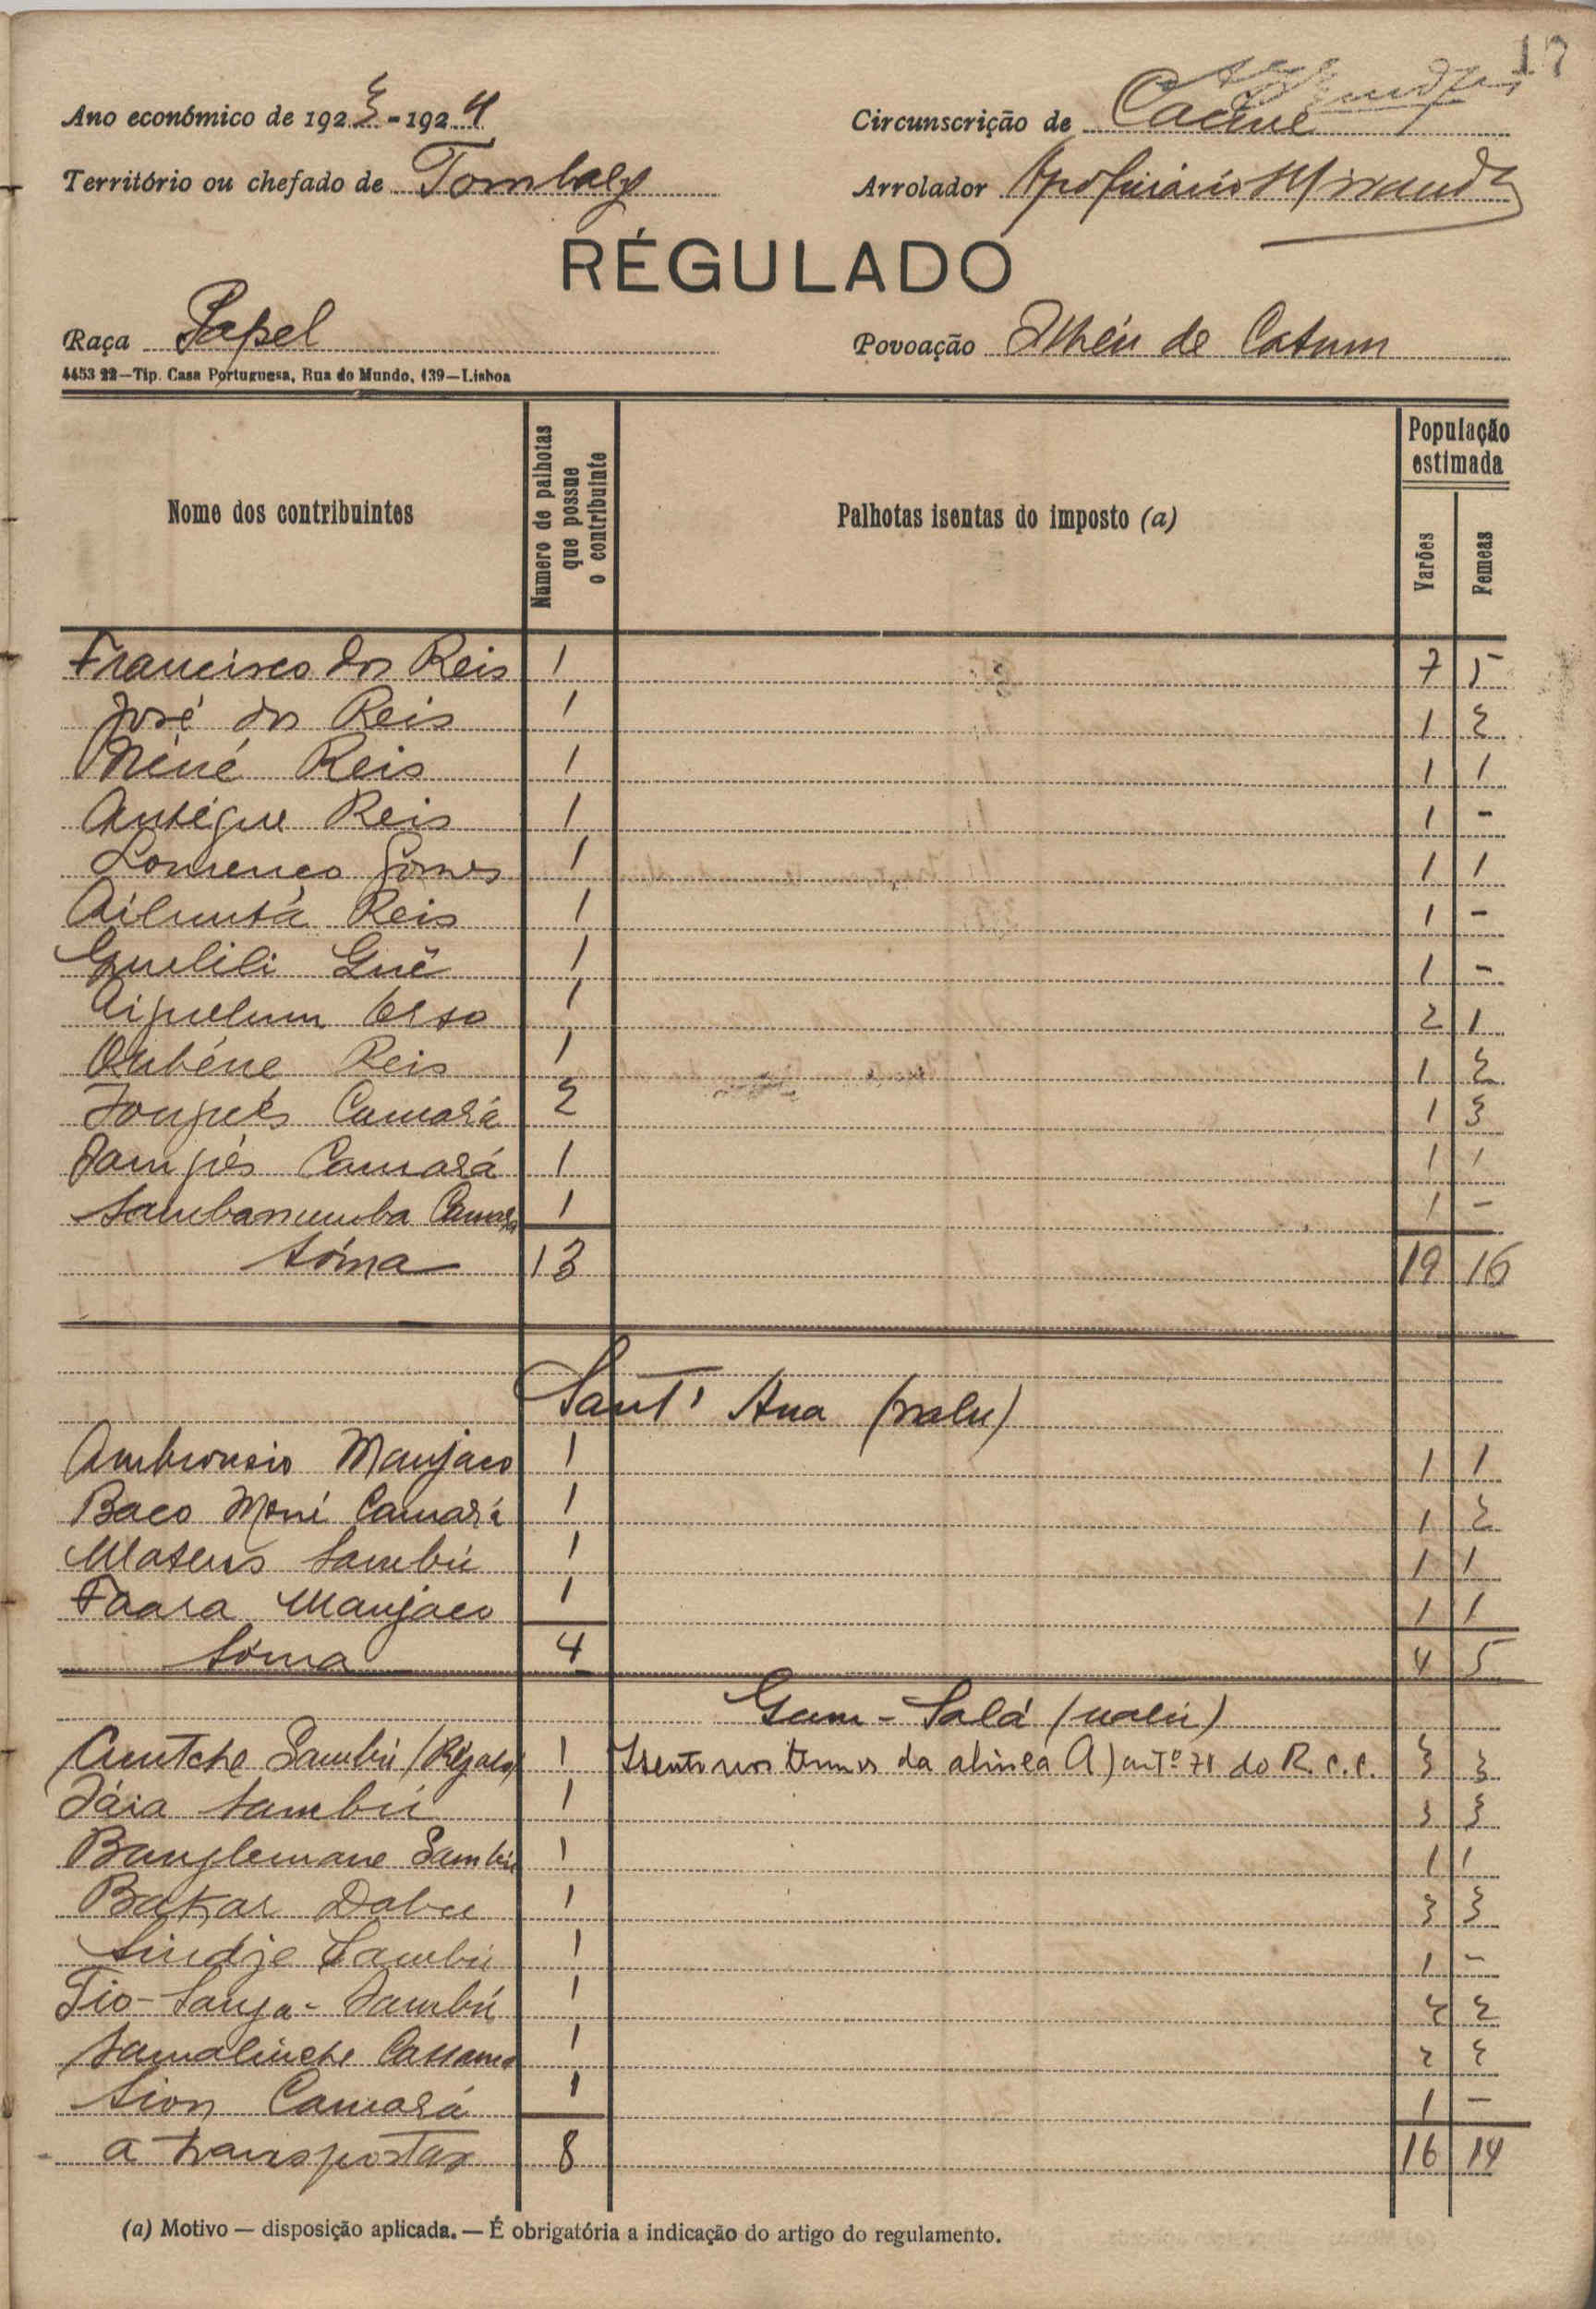 17
Ano económico de 1923-1924
Circunscrição de Cacine
Território ou chefado de Tombaly
Arrolador Miranda
RÉGULADO
Raça Papel
Povoação Ilhéu de Catum
4453 22—Tip. Casa Portuguesa, Rua do Mundo, 139—Lisboa
Nome dos contribuintes Numero de palhotas que possue o contribuinte Palhotas isentas do imposto (a) População estimada
Varões Femeas
Francisco dos Reis 1 7 5
José dos Reis 1 1 2
Néné Reis 1 1 1
Antégue Reis 1 1 -
Lourenço Gomes 1 1 1
Reis 1 1 -
Guelili Gué 1 1 -
1 2 1
Reis 1 1 2
Camará 2 1 3
Camará 1 1 1
Sambanumba Camará 1 1 -
Sôma 13 19 16
Sant' Ana (nalu)
Ambronsio Manjaco 1 1 1
Baco Moni Camará 1 1 2
Mateus Sambú 1 1 1
Faara Manjaco 1 1 1
Sôma 4 4 5
Gam-Salá (nalú)
Cuntche Sambú (Régulo) 1 Isento nos termos da alinea A) artº 71 do R. C. P. 3 3
Jára Sambú 1 3 3
Banglemane Sambú 1 1 1
Bakar Dabu 1 3 3
Sindje Sambú 1 1 -
Tio-Sanja-Sambú 1 2 2
Samalinche Cassamá 1 2 2
Sion Camará 1 1 -
a transportar 8 16 14
(a) Motivo — disposição aplicada. — É obrigatória a indicação do artigo do regulamento.